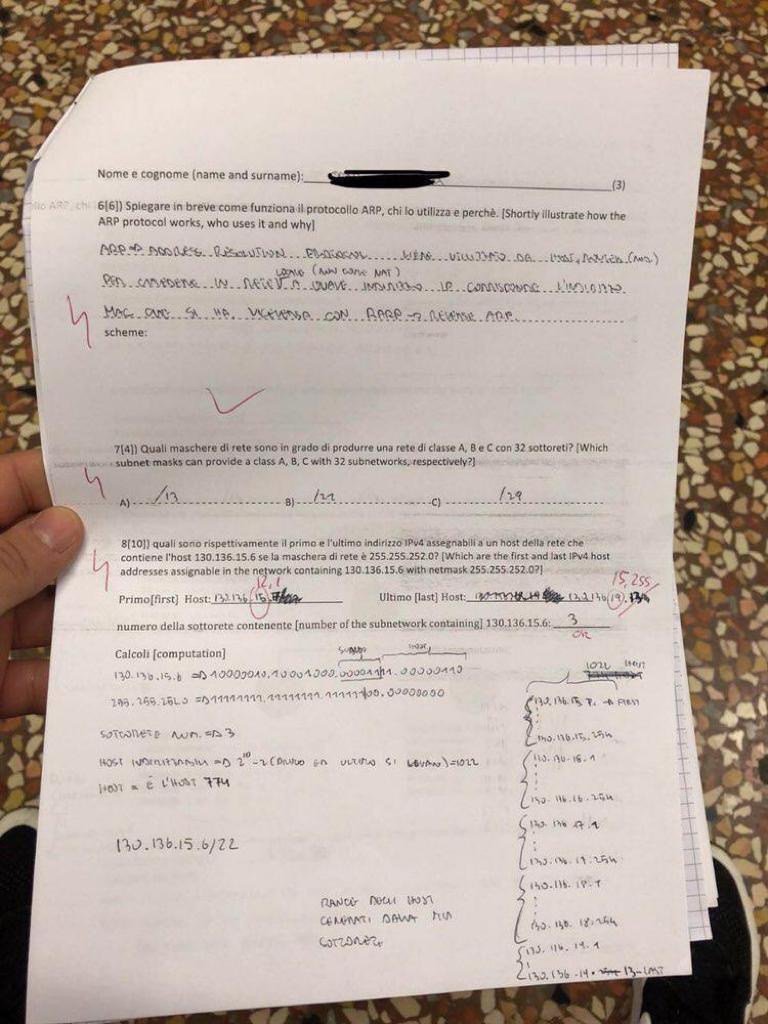 Nome e cognome (name and surname): (3)
6[6]) Spiegare in breve come funziona il protocollo ARP, chi lo utilizza e perchè. [Shortly illustrate how the
ARP protocol works, who uses it and why]
ARP → ADDRESS RESOLUTION PROTOCOL VIENE UTILIZZATO DA HOST,
LOCALE (NON COME NAT)
PER CHIEDERE IN RETE A QUALE INDIRIZZO IP CORRISPONDE L'INDIRIZZO
MAC CHE SI HA. VICEVERSA CON RARP → REVERSE ARP.
scheme:
7[4]) Quali maschere di rete sono in grado di produrre una rete di classe A, B e C con 32 sottoreti? [Which
subnet masks can provide a class A, B, C with 32 subnetworks, respectively?]
A) /13 B) /21 C) /29
8[10]) quali sono rispettivamente il primo e l'ultimo indirizzo IPv4 assegnabili a un host della rete che
contiene l'host 130.136.15.6 se la maschera di rete è 255.255.252.0? [Which are the first and last IPv4 host
addresses assignable in the network containing 130.136.15.6 with netmask 255.255.252.0?]
12,1 15,255
Primo[first] Host: 130.136.15. Ultimo [last] Host: 130.136.19.
numero della sottorete contenente [number of the subnetwork containing] 130.136.15.6: 3
OK
Calcoli [computation]
HOST
1022 HOST
130.136.15.6 => 10000010.10001000.00001111.00000110
255.255.252.0 => 11111111.11111111.11111100.00000000
130.136.15.7. → FIRST
SOTTORETE NUM. => 3
130.136.15.254
HOST INDIRIZZABILI => 2^10 - 2 (PRIMO ED ULTIMO SI LEVANO) = 1022
130.136.16.1
HOST = È L'HOST 774
130.136.16.254
130.136.17.1
130.136.15.6/22
130.136.17.254
130.136.18.1
RANGE DEGLI HOST
GENERATI DALLA MIA
130.136.18.254
SOTTORETE
130.136.19.1
130.136.19. 13-LAST